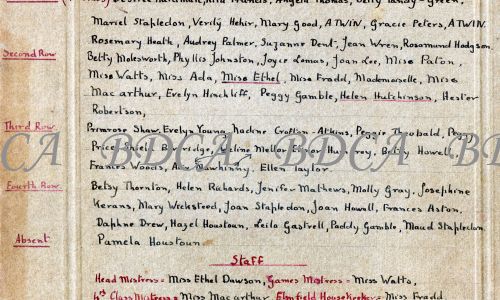 Desirée Nachman, Rita Francis, Angela Thomas, Betty Tandy-Green,
Mariel Stapledon, Verily Hehir, Mary Good, A TWIN, Gracie Peters, A TWIN.
Rosemary Heath, Audrey Palmer, Suzanne Dent, Jean Wren, Rosamund Hodgson.
Second Row Betty Molesworth, Phyllis Johnston, Joyce Lomas, Joan Lee, Miss Paton,
Miss Watts, Miss Ada, Miss Ethel, Miss Fradd, Mademoiselle, Miss
Macarthur, Evelyn Hinchliff, Peggy Gamble, Helen Hutchinson, Hester
Robertson,
Third Row Primrose Shaw, Evelyn Young, Nadine Crofton-Atkins, Peggie Theobald, Peggy
Price, Sheila Burridge, Mellor, Humfrey, Betty Howell,
Francis Woods, Mawhinny, Ellen Taylor.
Fourth Row. Betsy Thornton, Helen Richards, Jenifer Mathews, Molly Gray, Josephine
Kerans, Mary Weeksteed, Joan Stapledon, Joan Howell, Frances Aston,
Daphne Drew, Hazel Houstoun, Leila Gastrell, Paddy Gamble, Maud Stapledon.
Absent Pamela Houstoun.
Staff
Head Mistress = Miss Ethel Dawson, Games Mistress = Miss Watts,
Class Mistress = Miss Macarthur, Elmfield Housekeeper = Miss Fradd
BDCA BDCA